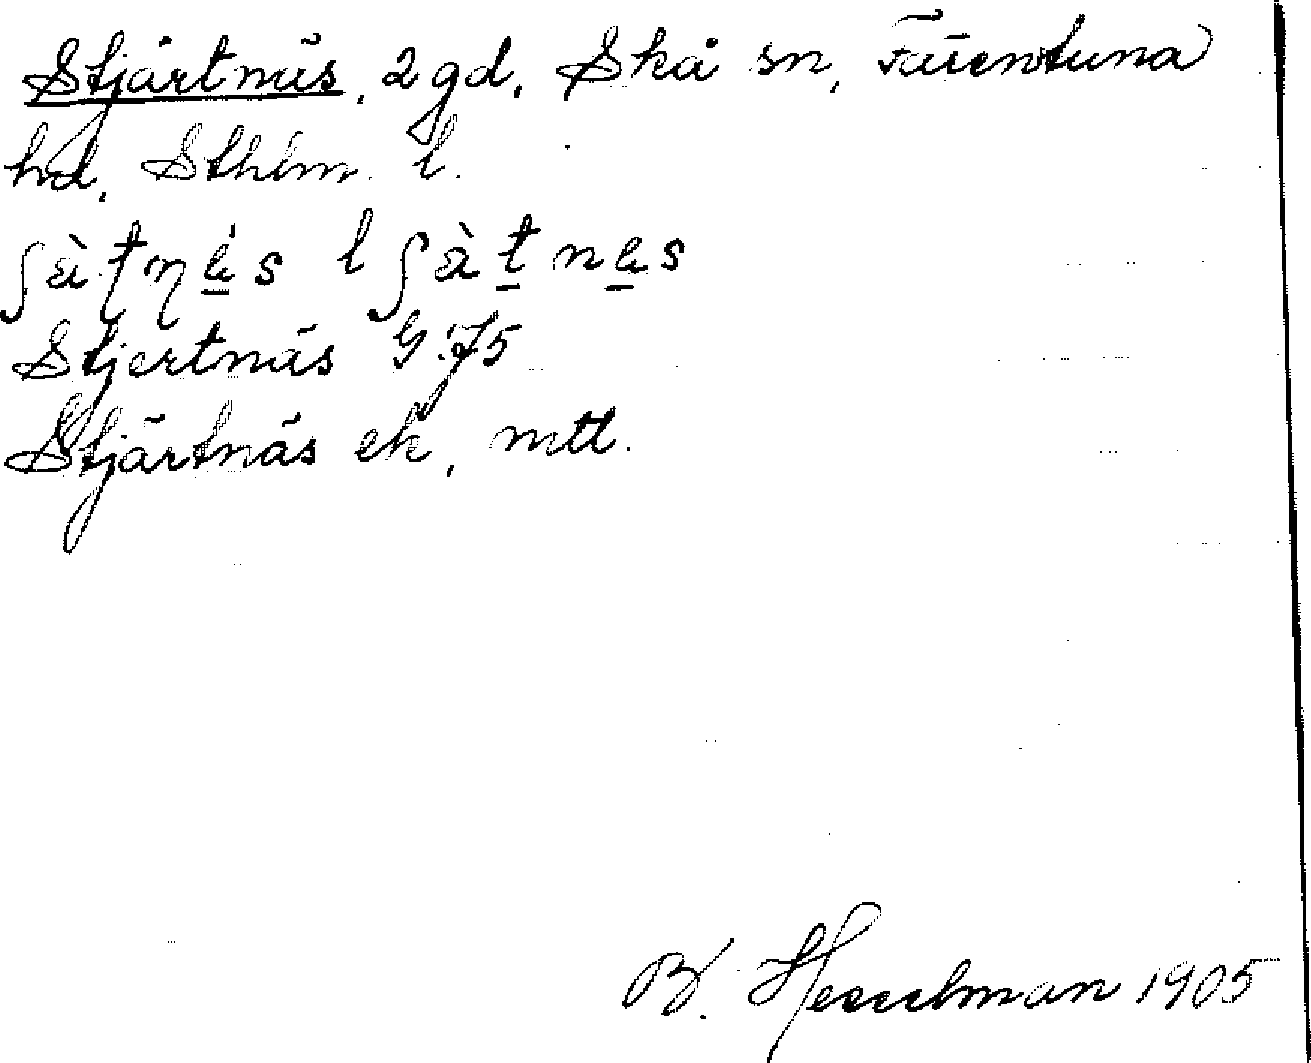 Stjärtnäs, 2 gd, Skå sn, Färentuna
hd, Sthlm. l.
ʃä̀ʈɳä́s l ʃä̀tnäs
Stjertnäs G:75
Stjärtnäs ek, mtl.
B. Hesselman 1905